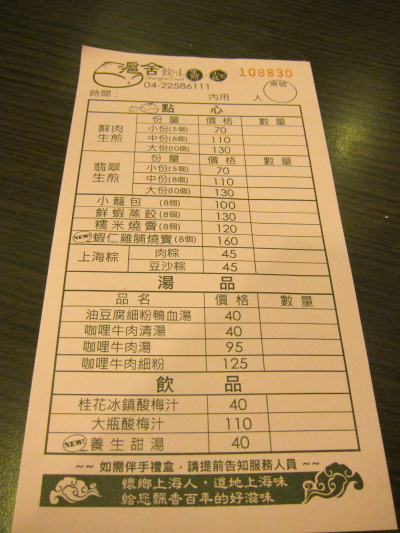 滬舍餘味 108830
Shanghai Food
04-22586111 桌號
時間： 內用 人
點心
份量 價格 數量
鮮肉生煎 小份(5個) 70
中份(8個) 110
大份(10個) 130
份量 價格 數量
翡翠生煎 小份(5個) 70
中份(8個) 110
大份(10個) 130
小籠包 (8個) 100
鮮蝦蒸餃(8個) 130
糯米燒賣(8個) 120
NEW! 蝦仁雞脯燒賣(8個) 160
上海粽 肉粽 45
豆沙粽 45
湯品
品名 價格 數量
油豆腐細粉鴨血湯 40
咖哩牛肉清湯 40
咖哩牛肉湯 95
咖哩牛肉細粉 125
飲品
桂花冰鎮酸梅汁 40
大瓶酸梅汁 110
NEW! 養生甜湯 40
~~ 如需伴手禮盒，請提前告知服務人員 ~~
懷鄉上海人，道地上海味
給您飄香百年的好滋味